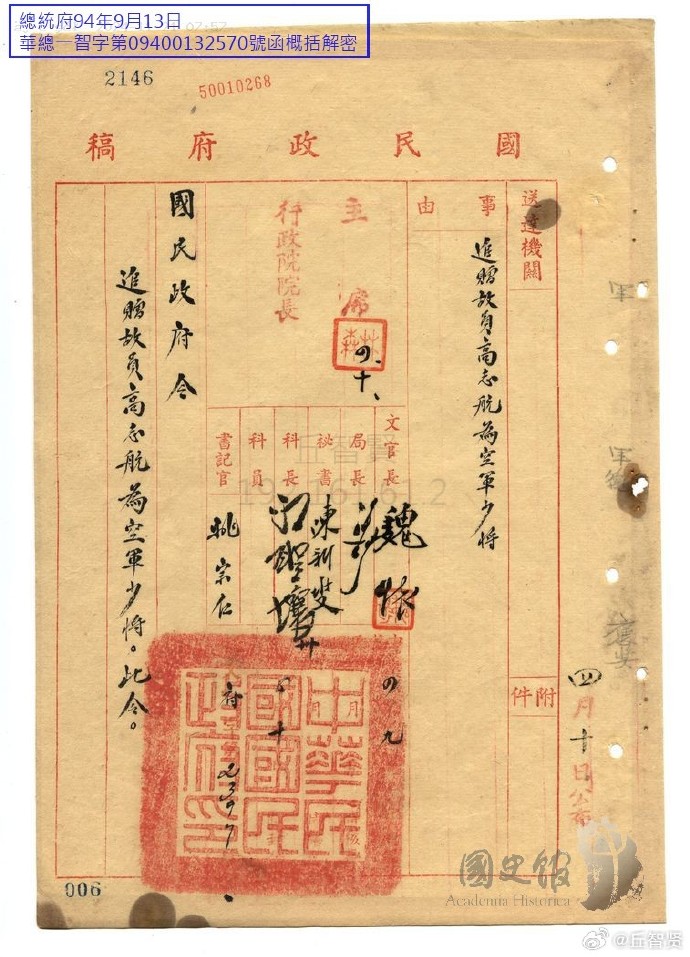 總統府94年9月13日
華總一智字第09400132570號函概括解密
2146
50010268
國民政府稿
送達機關
事由
追贈故員高志航為空軍少將
附件
四月十日公布
主席
林森
四、十、
行政院院長
文官長
魏懷
局長
秘書
科長
科員
書記官
姚宗仁
四 九
四 十
國民政府令
追贈故員高志航為空軍少將。此令。
中華民國國民政府印
006
丘智賢
國史館
Academia Historica
@丘智贤